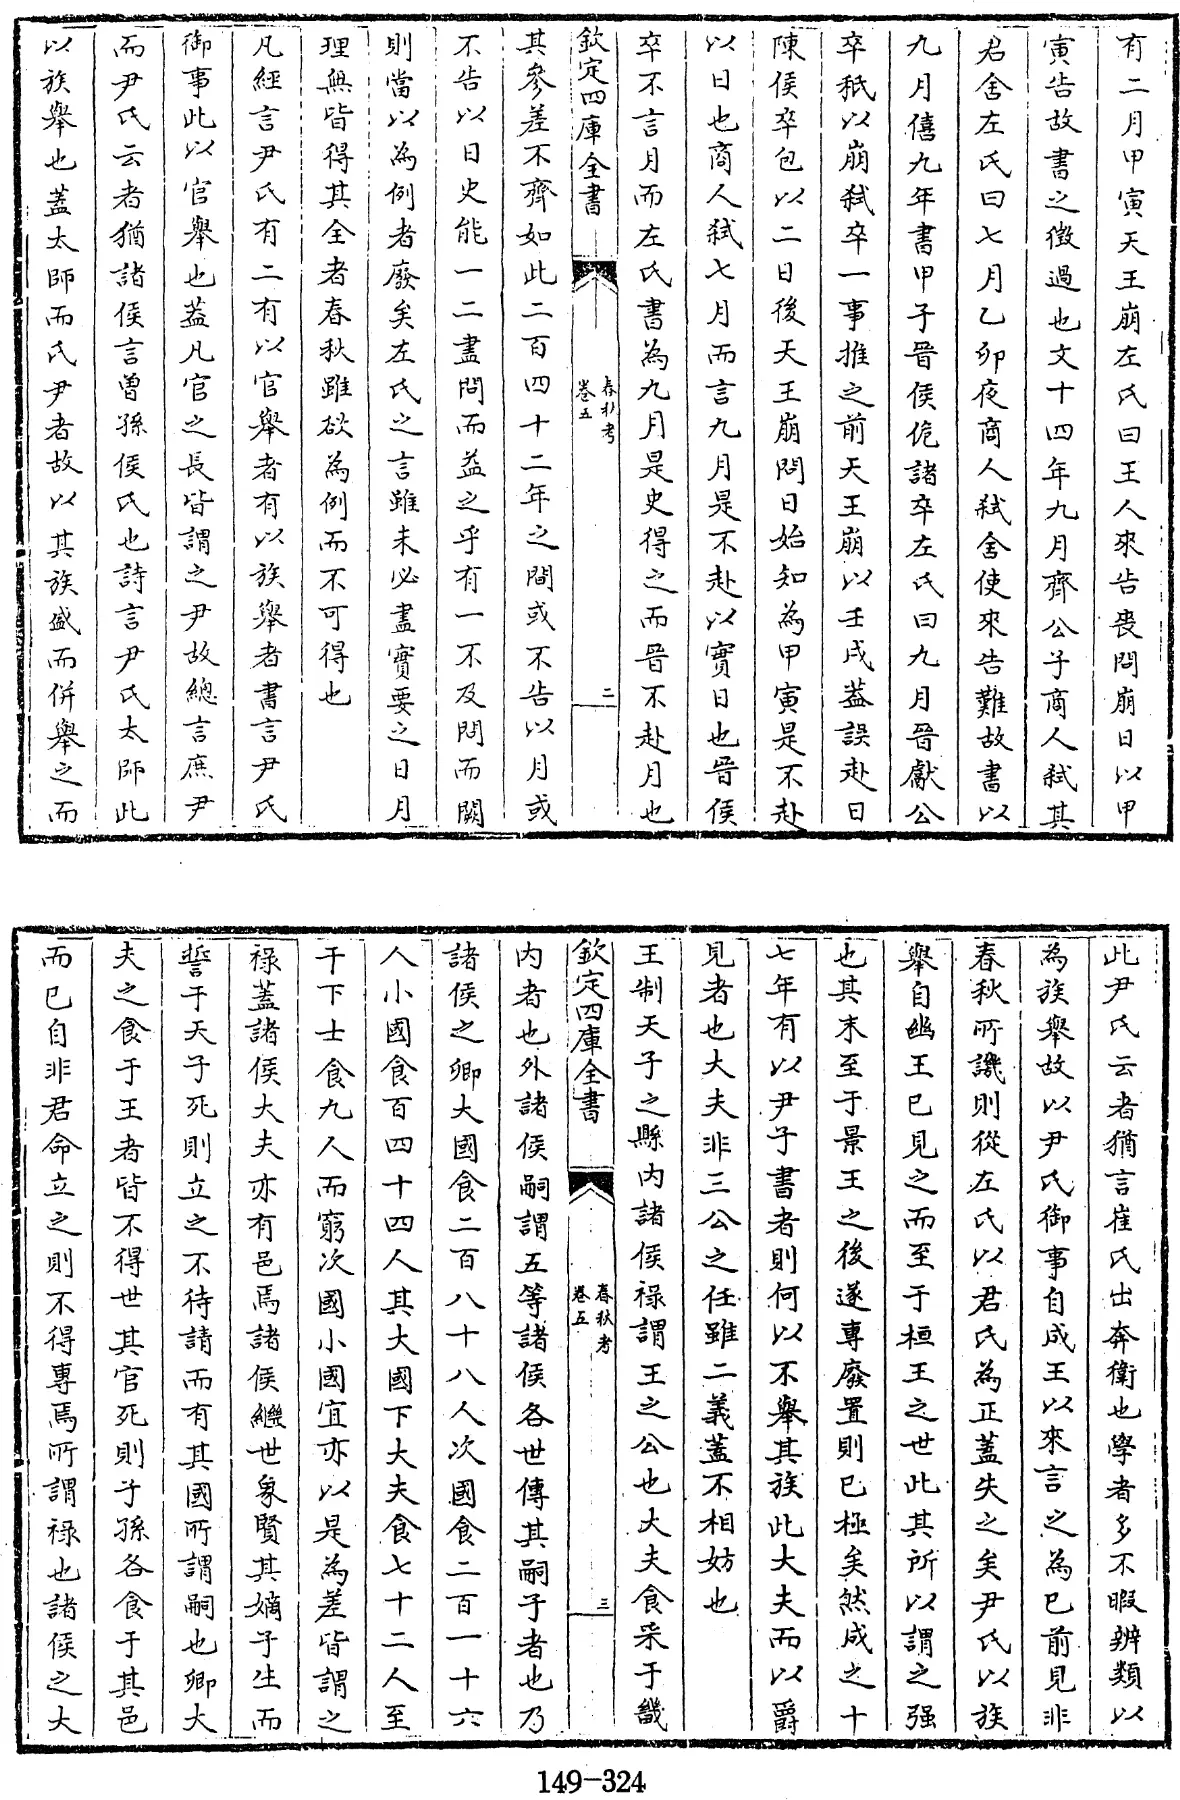 有二月甲寅天王崩左氏曰王人來告喪問崩日以甲
寅告故書之徴過也文十四年九月齊公子商人弑其
君舍左氏曰七月乙卯夜商人弑舍使來告難故書以
九月僖九年書甲子晉侯佹諸卒左氏曰九月晉獻公
卒秖以崩弑卒一事推之前天王崩以壬戌葢誤赴日
陳侯卒包以二日後天王崩問日始知為甲寅是不赴
以日也商人弑七月而言九月是不赴以實日也晉侯
卒不言月而左氏書為九月是史得之而晉不赴月也
欽定四庫全書
春秋考
卷五
二
其參差不齊如此二百四十二年之間或不告以月或
不告以日史能一二盡問而益之乎有一不及問而闕
則當以為例者廢矣左氏之言雖未必盡實要之日月
理無皆得其全者春秋雖欲為例而不可得也
凡經言尹氏有二有以官舉者有以族舉者書言尹氏
御事此以官舉也葢凡官之長皆謂之尹故總言庶尹
而尹氏云者猶諸侯言曽孫侯氏也詩言尹氏太師此
以族舉也蓋太師而氏尹者故以其族盛而併舉之而
此尹氏云者猶言崔氏出奔衛也學者多不暇辨類以
為族舉故以尹氏御事自成王以來言之為已前見非
春秋所譏則從左氏以君氏為正蓋失之矣尹氏以族
舉自幽王已見之而至于桓王之世此其所以謂之强
也其末至于景王之後遂專廢置則已極矣然成之十
七年有以尹子書者則何以不舉其族此大夫而以爵
見者也大夫非三公之任雖二義蓋不相妨也
王制天子之縣内諸侯祿謂王之公也大夫食采于畿
欽定四庫全書
春秋考
卷五
三
内者也外諸侯嗣謂五等諸侯各世傳其嗣子者也乃
諸侯之卿大國食二百八十八人次國食二百一十六
人小國食百四十四人其大國下大夫食七十二人至
于下士食九人而窮次國小國宜亦以是為差皆謂之
祿蓋諸侯大夫亦有邑焉諸侯繼世象賢其嫡子生而
誓于天子死則立之不待請而有其國所謂嗣也卿大
夫之食于王者皆不得世其官死則子孫各食于其邑
而已自非君命立之則不得專焉所謂祿也諸侯之大
149-324